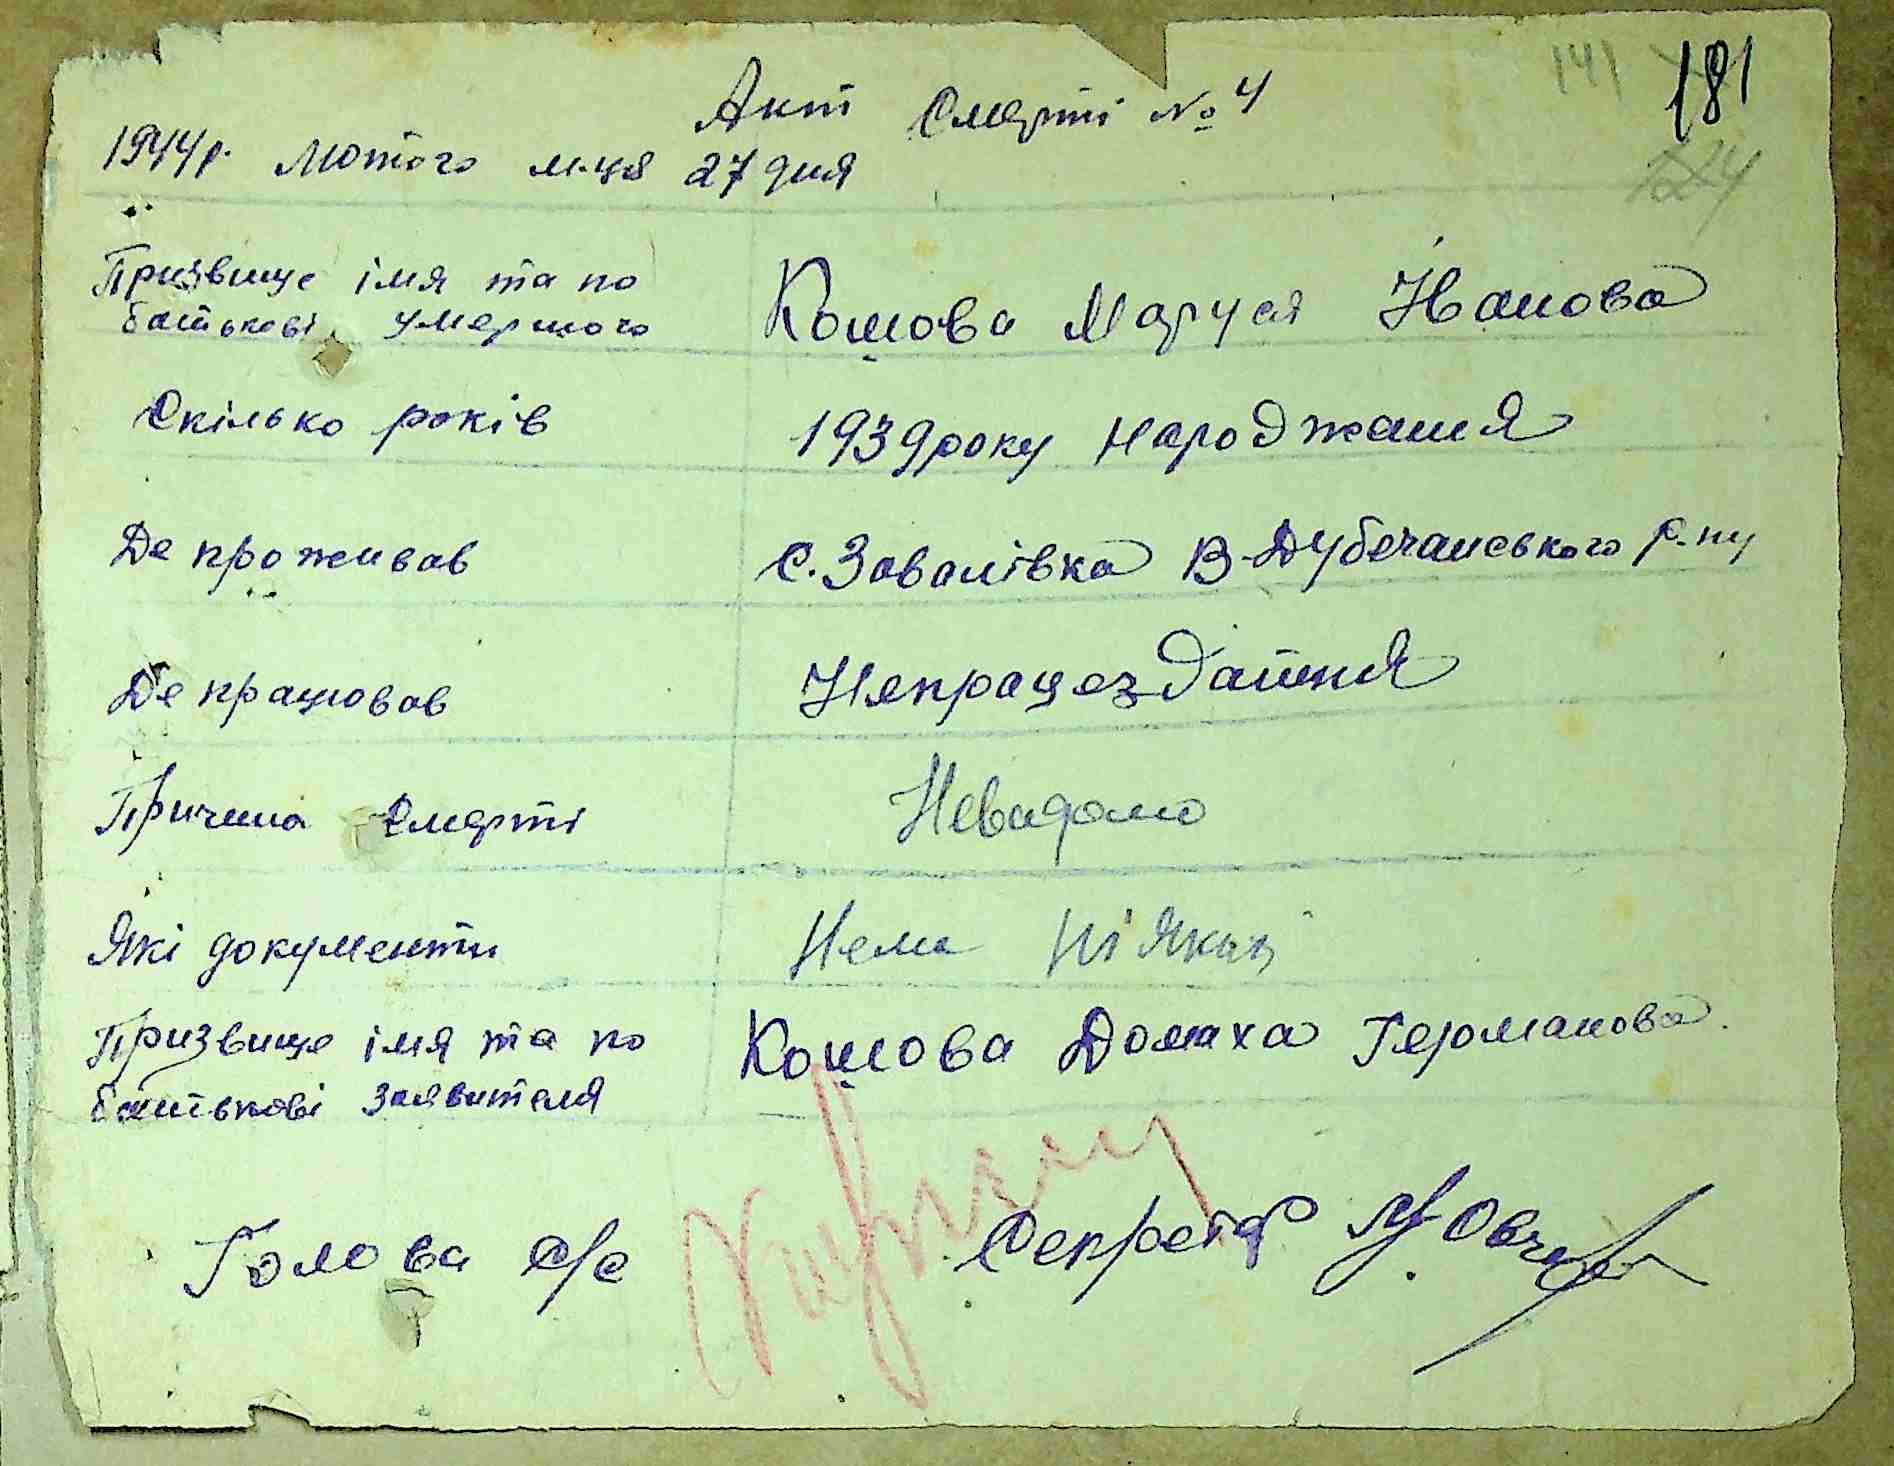 141 181
Акт Смерти №4
1944р. Лютого м-ця 27 дня
Призвище імя та по
батькові умершого
Кошова Маруся Иванова
Скілько років
1939 року народжання
Де проживав
с. Завалівка В-Дубечанського р-ну
Де працював
Непрацездатня
Причина Смерті
Невидомо
Які документи
Нема ніяких
Призвище імя та по
батькові заявителя
Кошова Домаха Германова
Голова с/с
Секретар